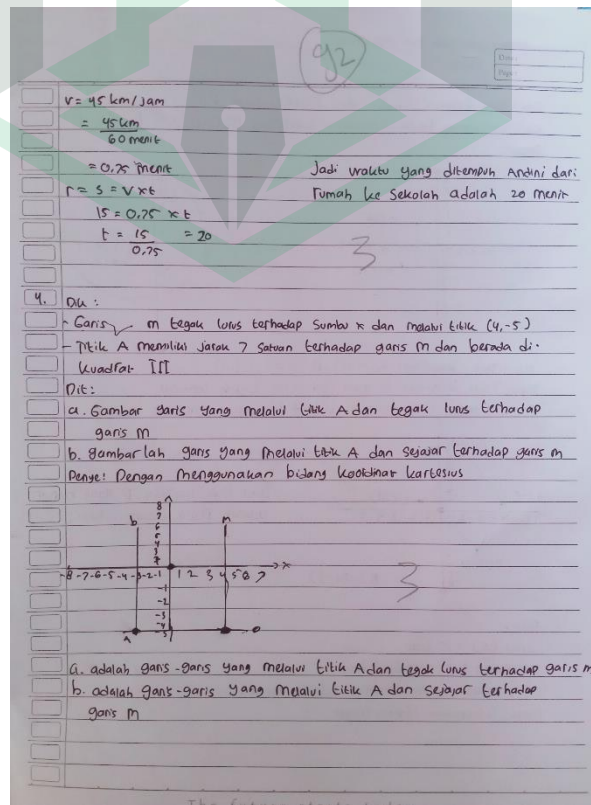 92
Date:
Page:
V = 45 km/jam
= 45 km
60 menit
= 0,75 menit
r = s = v x t
15 = 0,75 x t
t = 15 = 20
0,75
Jadi waktu yang ditempuh Andini dari
rumah ke sekolah adalah 20 menit
3
4. Dik :
- Garis m tegak lurus terhadap sumbu x dan melalui titik (4,-5)
- Titik A memiliki jarak 7 satuan terhadap garis m dan berada di.
kuadrat III
Dit:
a. Gambar garis yang melalui titik A dan tegak lurus terhadap
garis m
b. gambar lah garis yang melalui titik A dan sejajar terhadap garis m
Penye: Dengan menggunakan bidang koordinat kartesius
8
7
6
5
4
3
2
1
b
m
-8 -7 -6 -5 -4 -3 -2 -1 1 2 3 4 5 6 7 x
-1
-2
-3
-4
-5
A
3
a. adalah garis-garis yang melalui titik A dan tegak lurus terhadap garis m
b. adalah garis-garis yang melalui titik A dan sejajar terhadap
garis m